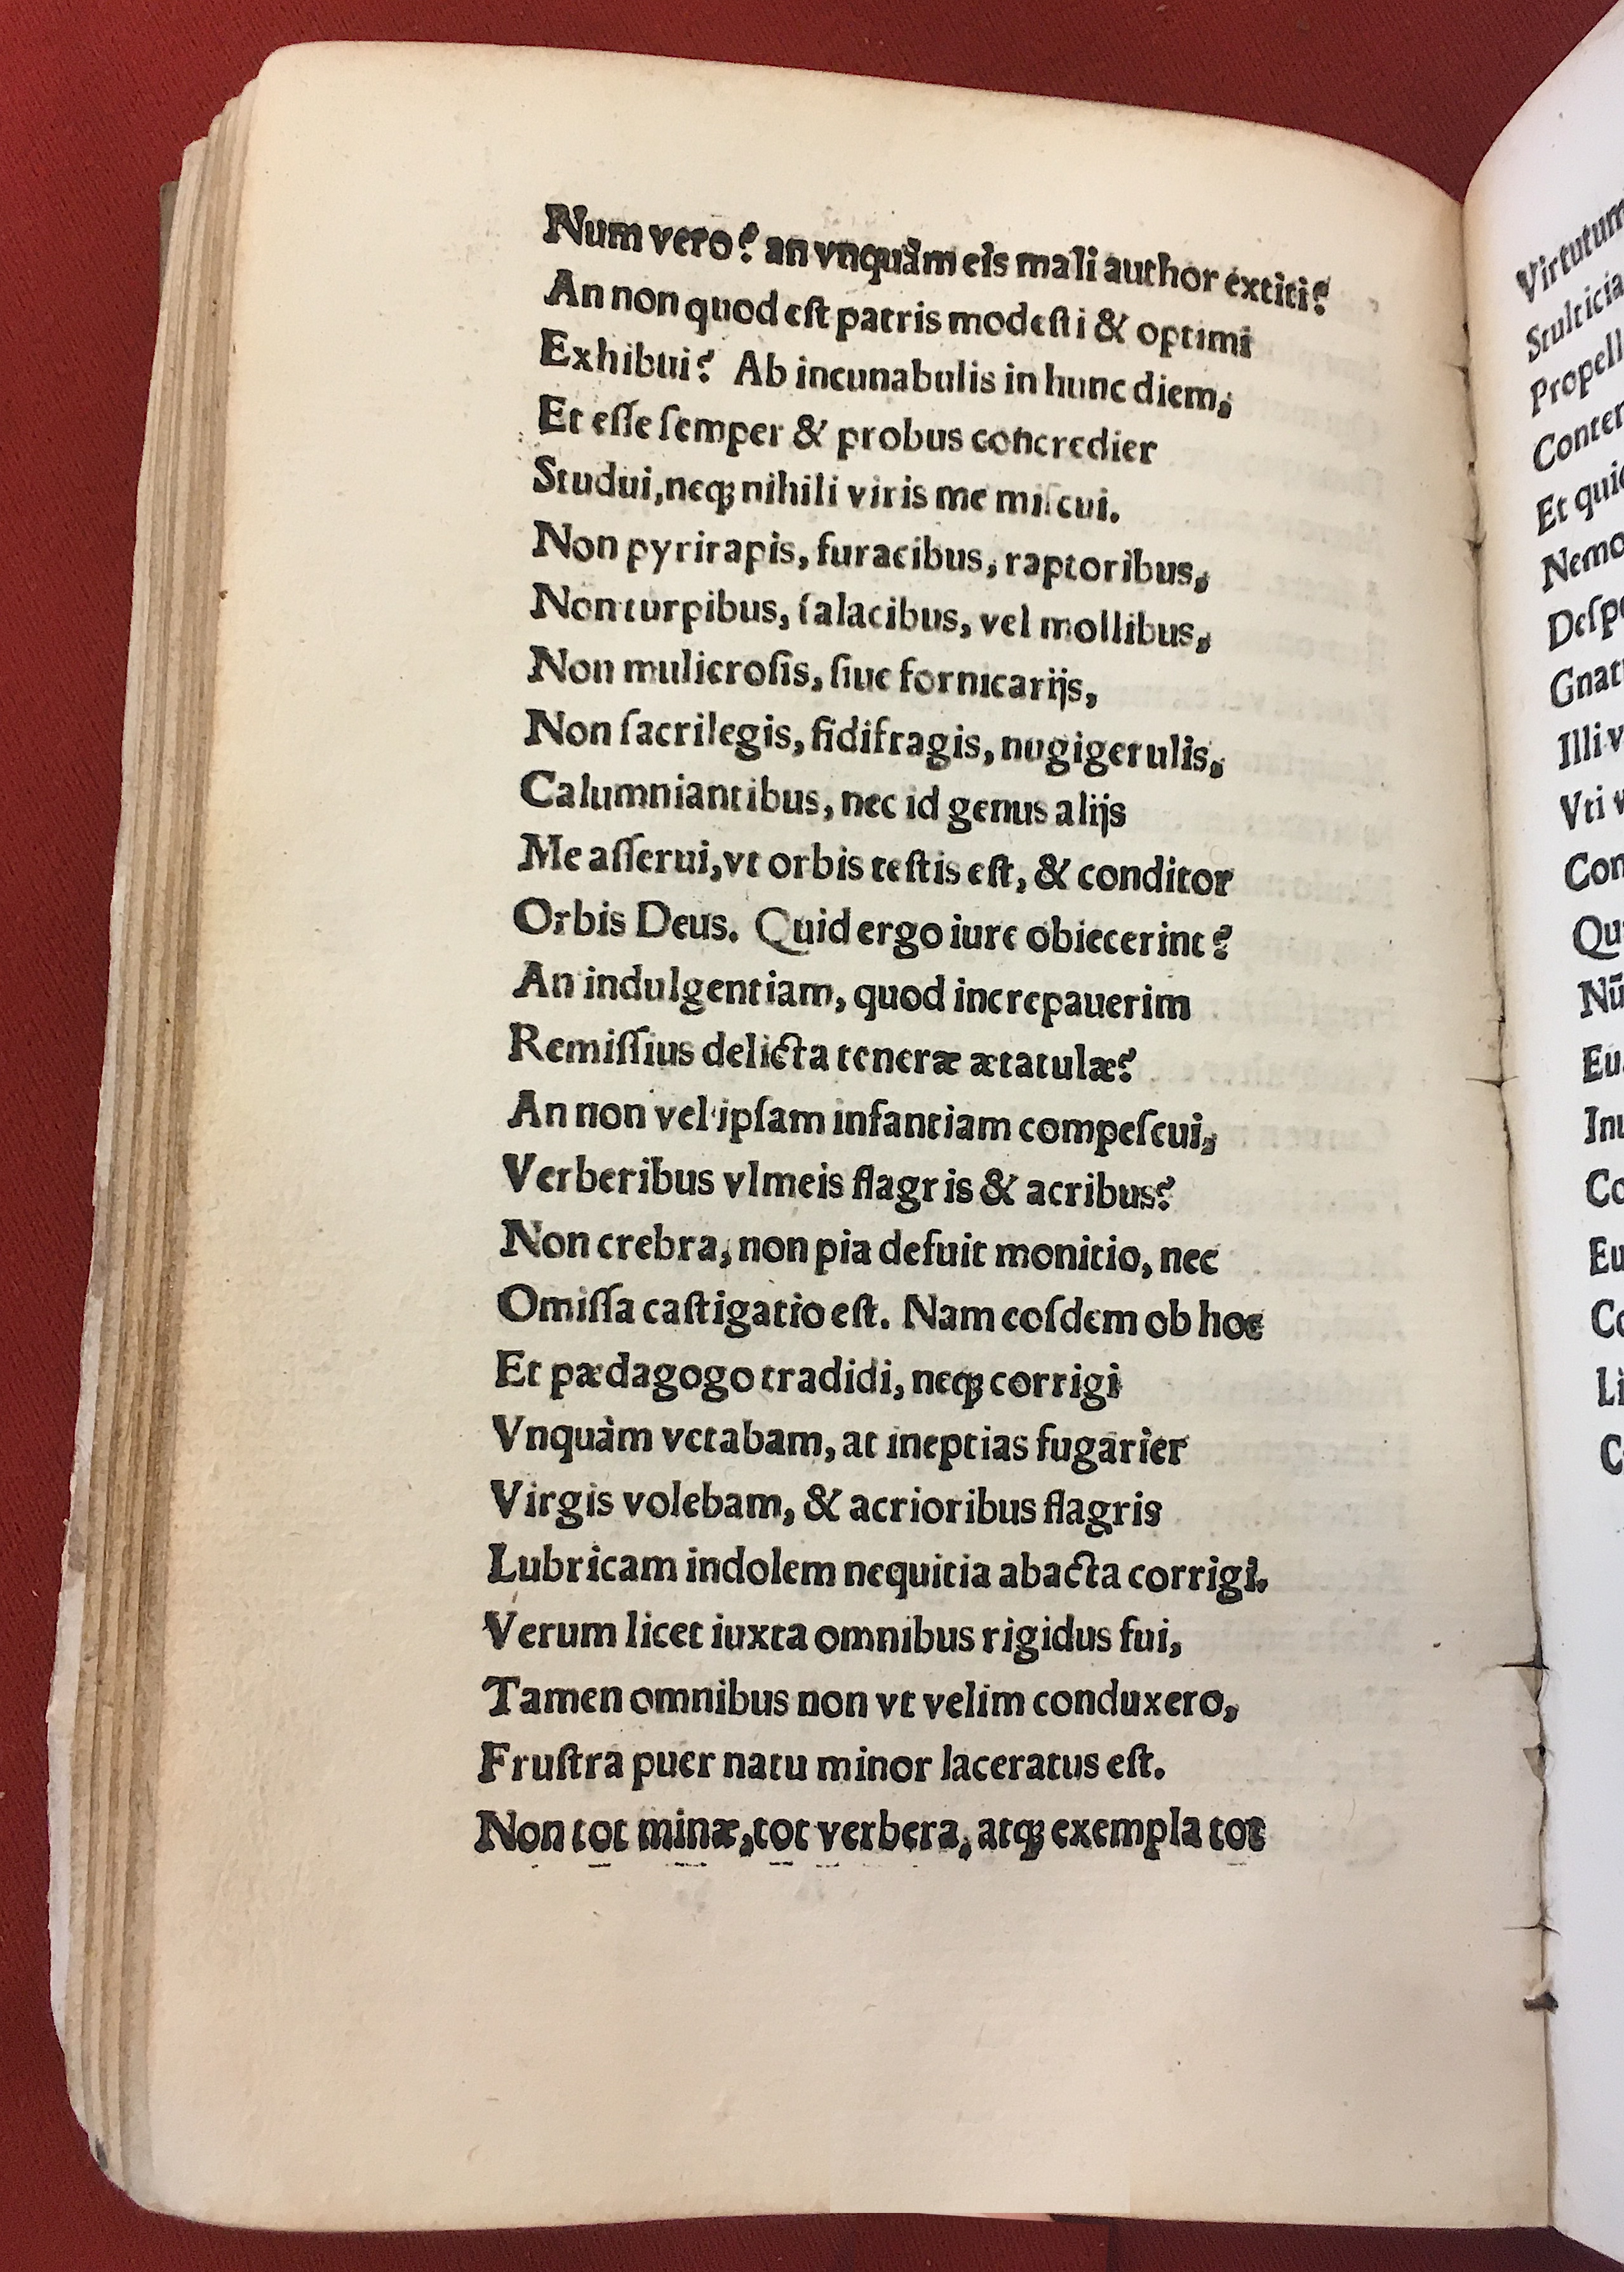 Num vero? an vnquàm eis mali author extiti?
An non quod eſt patris modeſti & optimi
Exhibui? Ab incunabulis in hunc diem,
Et eſſe ſemper & probus concredier
Studui, neqꝫ nihili viris me miſcui.
Non pyrirapis, furacibus, raptoribus,
Non turpibus, ſalacibus, vel mollibus,
Non mulieroſis, ſiue fornicarijs,
Non ſacrilegis, fidifragis, nugigerulis,
Calumniantibus, nec id genus alijs
Me aſſerui, vt orbis teſtis eſt, & conditor
Orbis Deus. Quid ergo iure obiecerint?
An indulgentiam, quod increpauerim
Remiſſius delicta teneræ ætatulæ?
An non vel ipſam infantiam compeſcui,
Verberibus vlmeis flagris & acribus?
Non crebra, non pia defuit monitio, nec
Omiſſa caſtigatio eſt. Nam eoſdem ob hoc
Et pædagogo tradidi, neqꝫ corrigi
Vnquàm vetabam, at ineptias fugarier
Virgis volebam, & acrioribus flagris
Lubricam indolem nequitia abacta corrigi.
Verum licet iuxta omnibus rigidus fui,
Tamen omnibus non vt velim conduxero,
Fruſtra puer natu minor laceratus eſt.
Non tot minæ, tot verbera, atqꝫ exempla tot
Virtutum
Stulticia
Propell
Et qui
Nemo
Deſp
Gnat
Illi v
Vti v
Con
Qu
Nū
Eu
Co
Eu
Co
Li
C